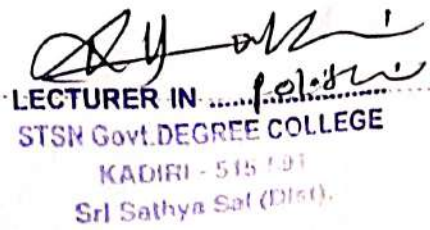 LECTURER IN ............
STSN Govt.DEGREE COLLEGE
KADIRI - 515 591
Sri Sathya Sai (Dist).